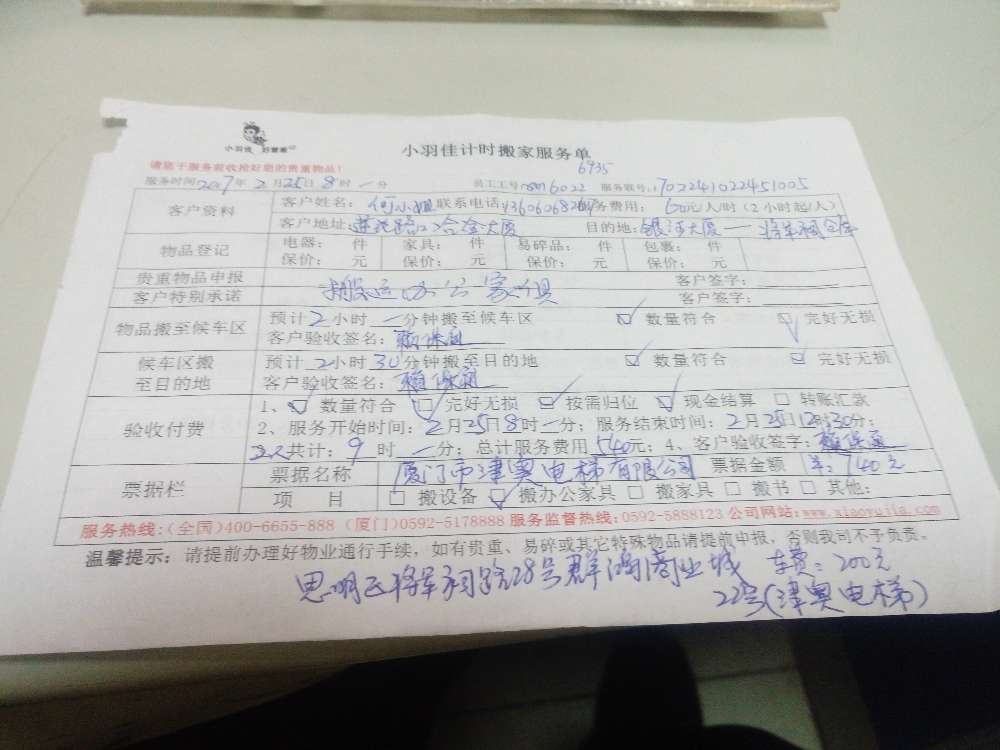 小羽佳 好管家
小羽佳计时搬家服务单
6935
请您于服务前收拾好您的贵重物品!
服务时间2017年2月25日8时一分 员工工号 6022 服务账号:1702241022451005
客户资料 客户姓名:何小姐 联系电话 服务费用:60元/人/时(2小时起/人)
客户地址: 目的地:银河大厦一将军祠仓库
物品登记 电器: 件 家具: 件 易碎品: 件 包裹: 件
保价: 元 保价: 元 保价: 元 保价: 元
贵重物品申报 客户签字:
客户特别承诺 搬运办公家俱 客户签字:
物品搬至候车区 预计2小时一分钟搬至候车区 数量符合 完好无损
客户验收签名:
候车区搬至目的地 预计2小时30分钟搬至目的地 数量符合 完好无损
客户验收签名:
验收付费 1、 数量符合 完好无损 按需归位 现金结算 转账汇款
2、服务开始时间:2月25日8时一分; 服务结束时间:2月25日12时30分;
2人共计:9时一分; 总计服务费用540元; 4、客户验收签字:
票据栏 票据名称 厦门市津奥电梯有限公司 票据金额 ¥:740元
项 目 搬设备 搬办公家具 搬家具 搬书 其他:
服务热线:(全国)400-6655-888 (厦门)0592-5178888 服务监督热线:0592-5888123 公司网站:www.xiaoyujia.com
温馨提示:请提前办理好物业通行手续,如有贵重、易碎或其它特殊物品请提前申报,否则我司不予负责。
思明区将军祠路28号群鸿商业城 车费:200元
22号(津奥电梯)